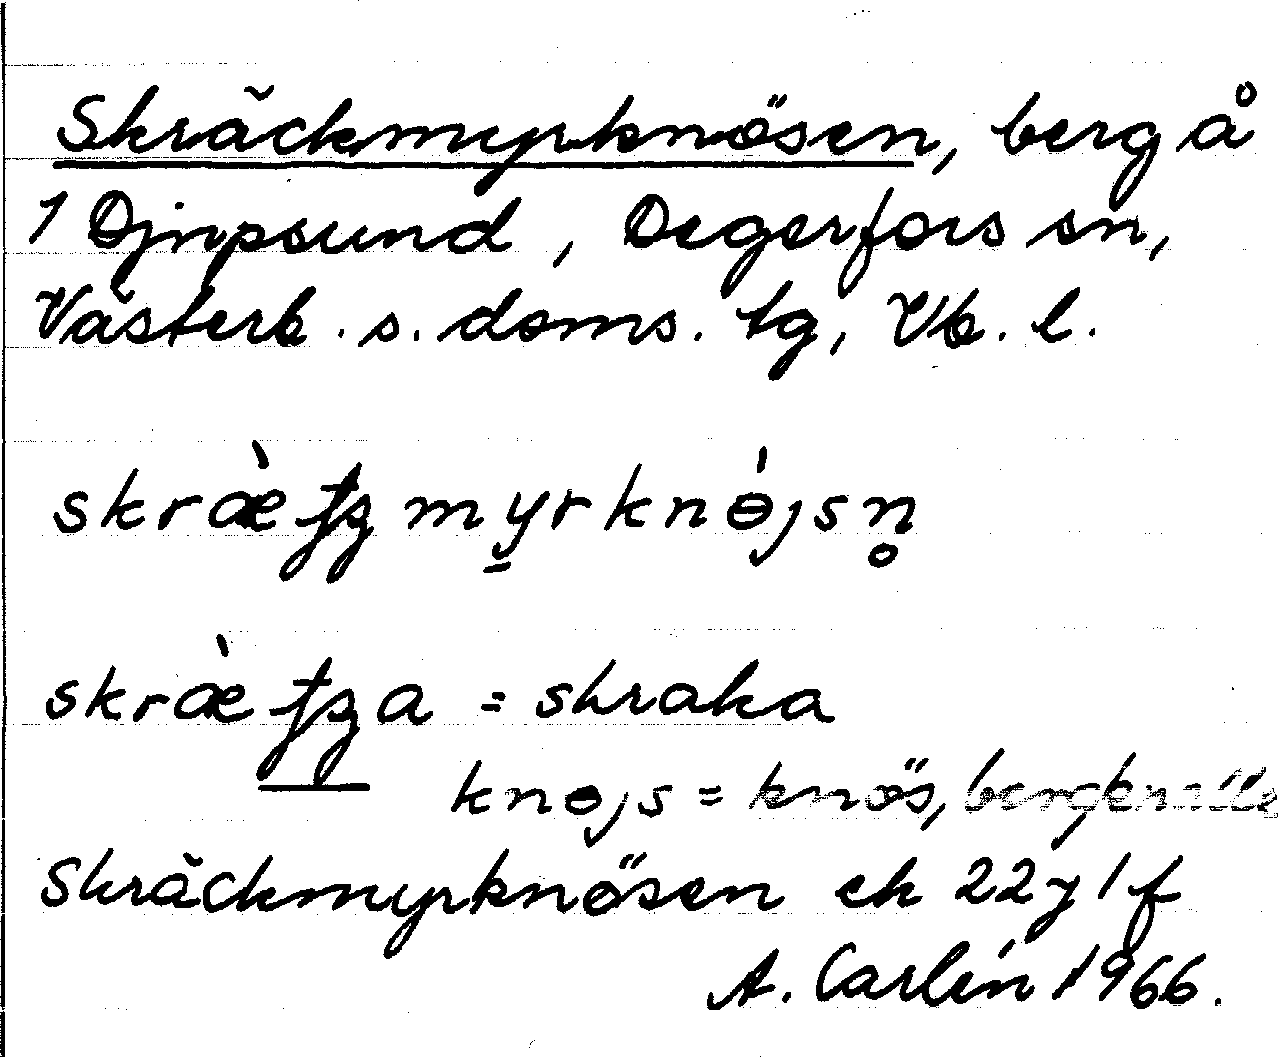 Skräckmyrknösen, berg å
1 Djupsund, Degerfors sn,
Västerb. s. doms. tg, Vb. l.
skræ̀ myrknɵ́jsn̥
skræ̀ = skraka
knɵjs = knös,
Skräckmyrknösen ek 22 y 1 f
A. Carlén 1966.